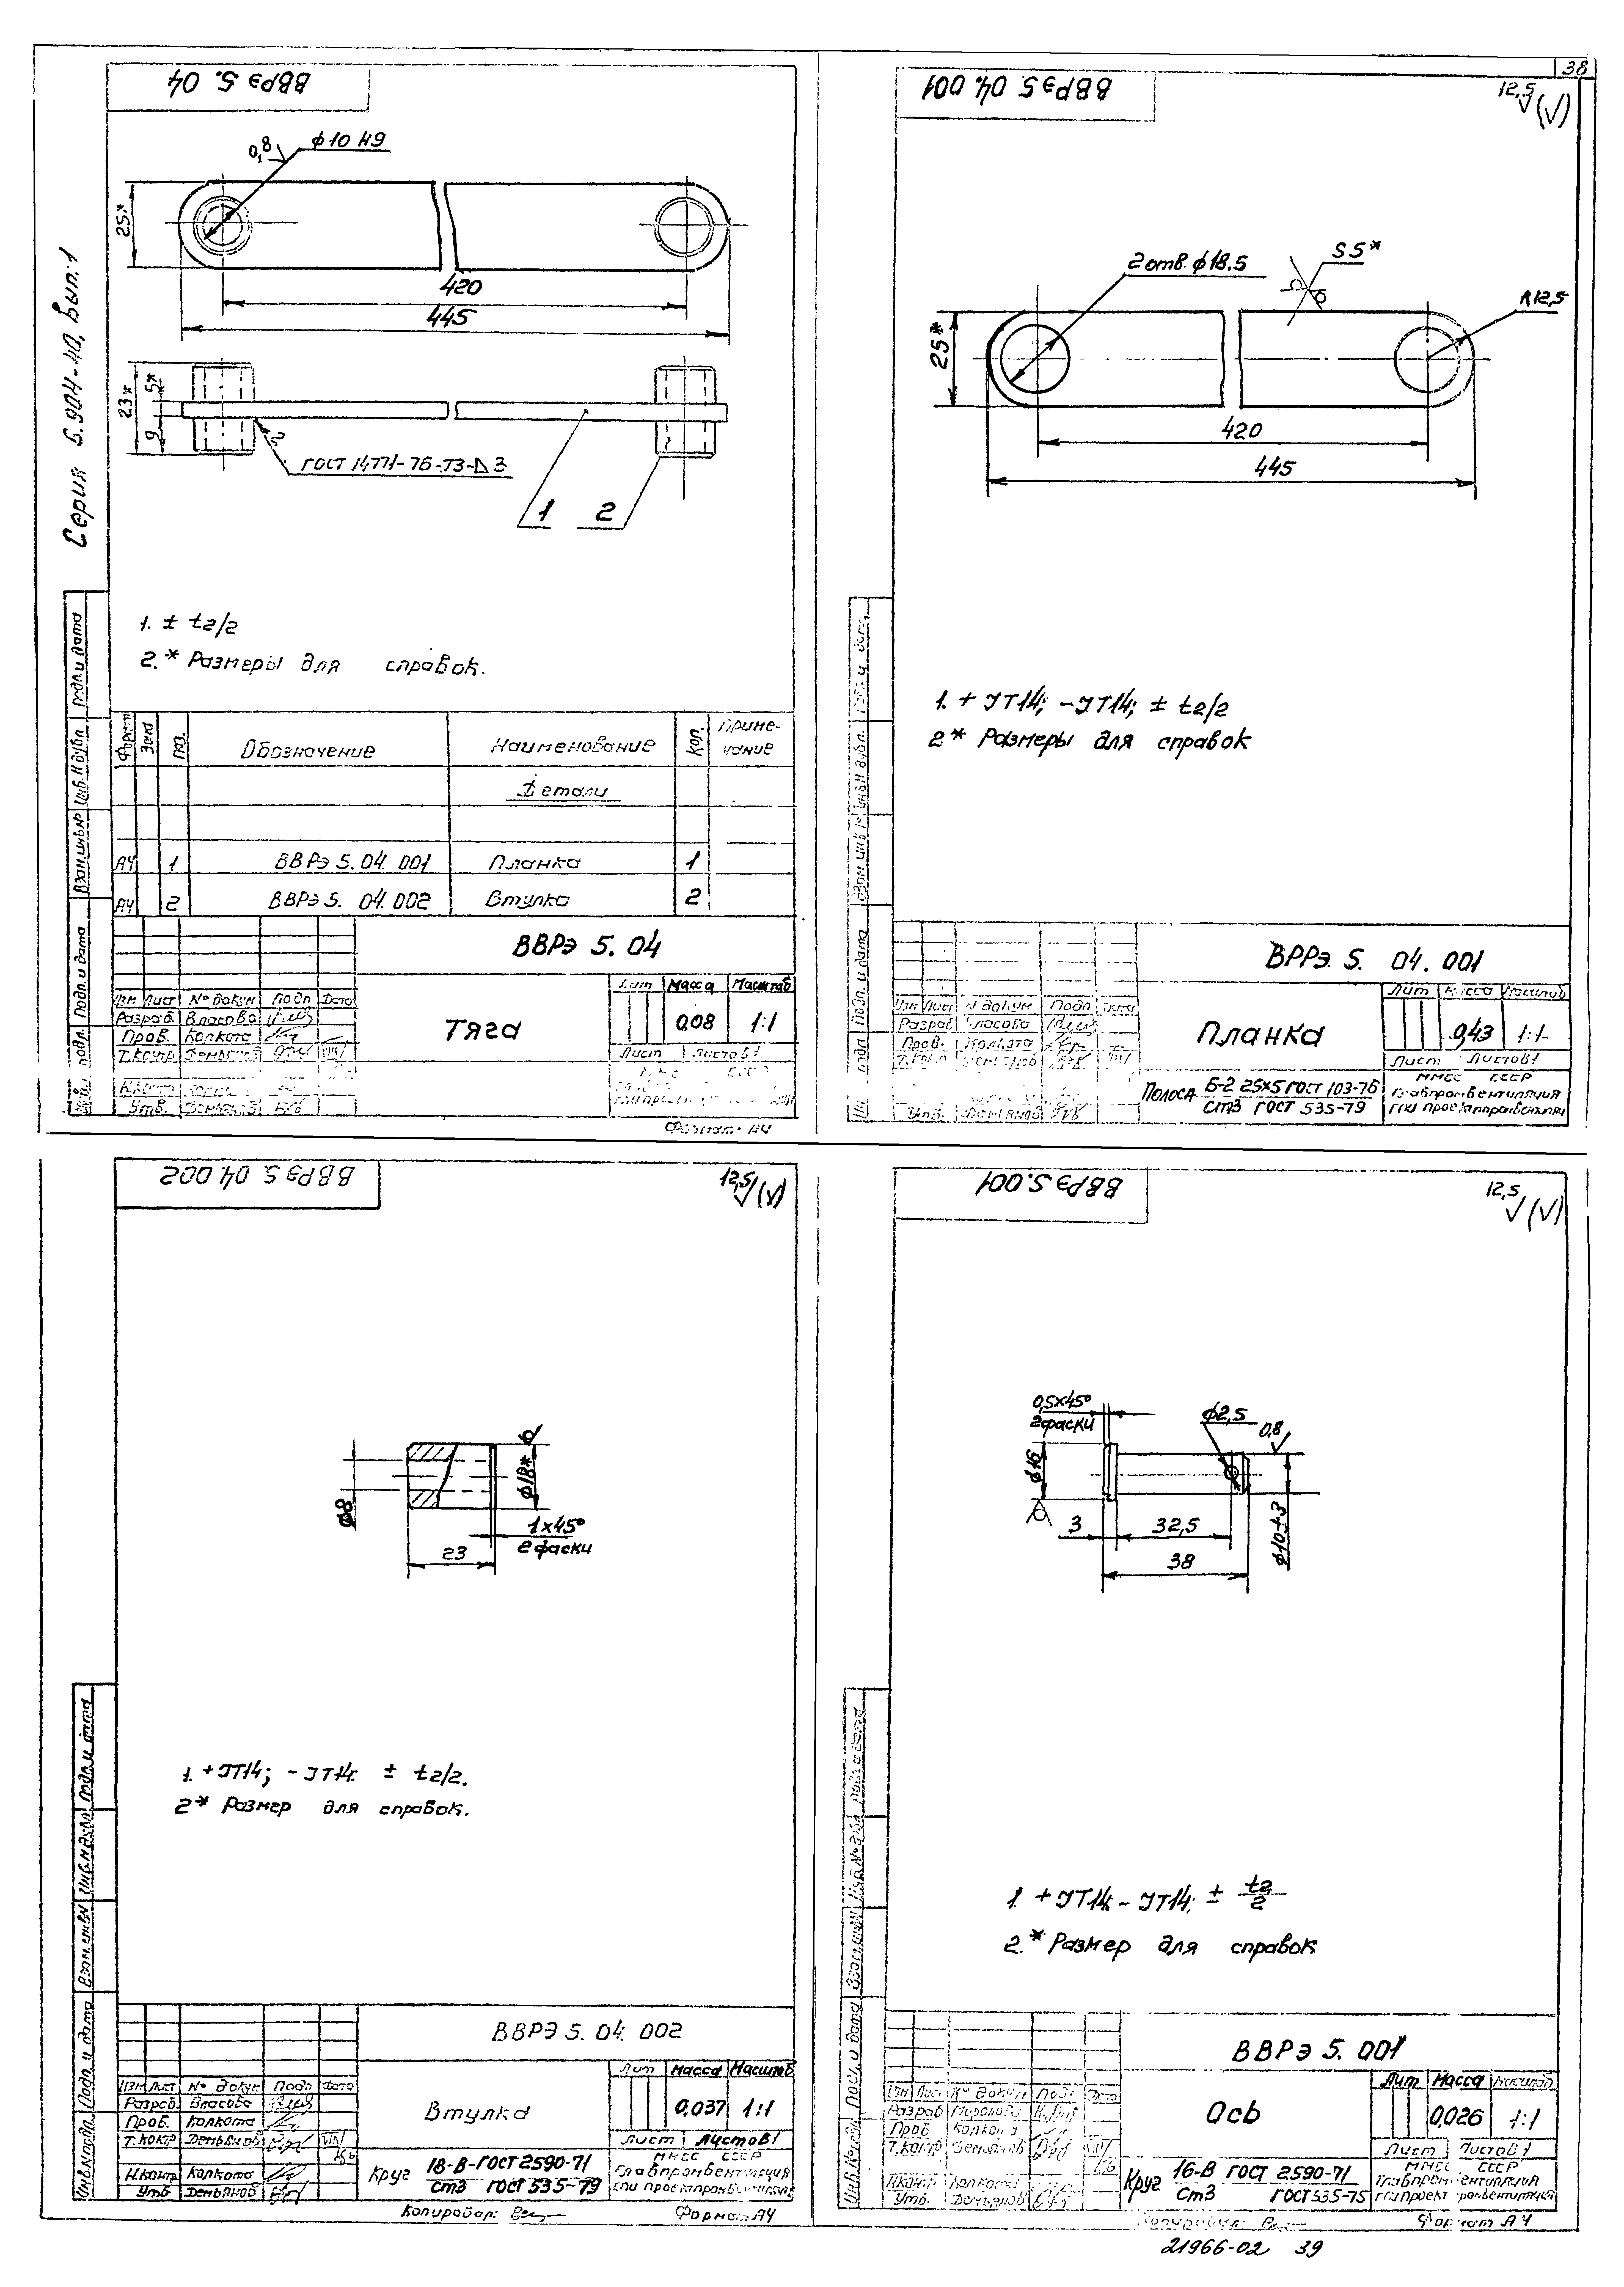 38
Серия 5.904-40, Вып.1
ВВРэ 5. 04
0,8
ф10 H9
25*
420
445
23*
5*
9
2
ГОСТ 14771-76-Т3-⊿3
1 2
1. ± t2/2
2.* Размеры для справок.
Формат Зона Поз. Обозначение Наименование Кол. Приме-
чание
Детали
А4 1 ВВРэ 5. 04. 001 Планка 1
А4 2 ВВРэ 5. 04. 002 Втулка 2
ВВРэ 5. 04
Изм Лист № докум Подп Дата
Разраб. Власова
Пров. Колкота
Т.контр. Демьянов
Утв. Демьянов
Тяга
Лит Масса Масштаб
0,08 1:1
Лист Листов 1
Формат А4
Подп. и дата
Инв. N дубл.
Взам. инв. №
Подп. и дата
ВВРэ 5. 04. 001
12,5
(√)
2 отв. ф18,5
S 5*
R12,5
25*
420
445
1. + JT14; -JT14; ± t2/2
2* Размеры для справок
ВРРэ. 5. 04. 001
Изм Лист N докум Подп Дата
Разраб Власова
Пров. Колкота
Утв. Демьянов
Планка
Лит Масса Масштаб
0,43 1:1
Лист Листов 1
Полоса Б-2 25x5 ГОСТ 103-76
Ст3 ГОСТ 535-79
ММСС СССР
Главпромвентиляция
ГПИ Проектпромвентиляция
ВВРэ 5. 04 002
12,5
(√)
ф8
ф18*
1x45°
2 фаски
23
1. +JT14; -JT14. ± t2/2.
2* Размер для справок.
ВВРЭ 5. 04. 002
Изм Лист № докум Подп Дата
Разраб. Власова
Пров. Колкота
Т.контр Демьянов
Н.контр Колкота
Утв Демьянов
Втулка
Лит Масса Масштаб
0,037 1:1
Лист Листов 1
Круг 18-В-ГОСТ 2590-71
Ст3 ГОСТ 535-79
ММСС СССР
Главпромвентиляция
ГПИ Проектпромвентиляция
Копировал:
Формат А4
ВВРэ 5.001
12,5
(√)
0,5x45°
2 фаски
ф2,5
0,8
ф16
3
32,5
38
1 + JT14; - JT14; ± t2/2
2.* Размер для справок
ВВРэ 5. 001
Изм Лист № докум Подп Дата
Т.контр Демьянов
Н.контр Колкота
Утв. Демьянов
Ось
Лит Масса Масштаб
0,026 1:1
Лист Листов 1
Круг 16-В ГОСТ 2590-71
Ст3 ГОСТ 535-75
ММСС СССР
Главпромвентиляция
ГПИ Проектпромвентиляция
Копировал:
Формат А4
21966-02 39